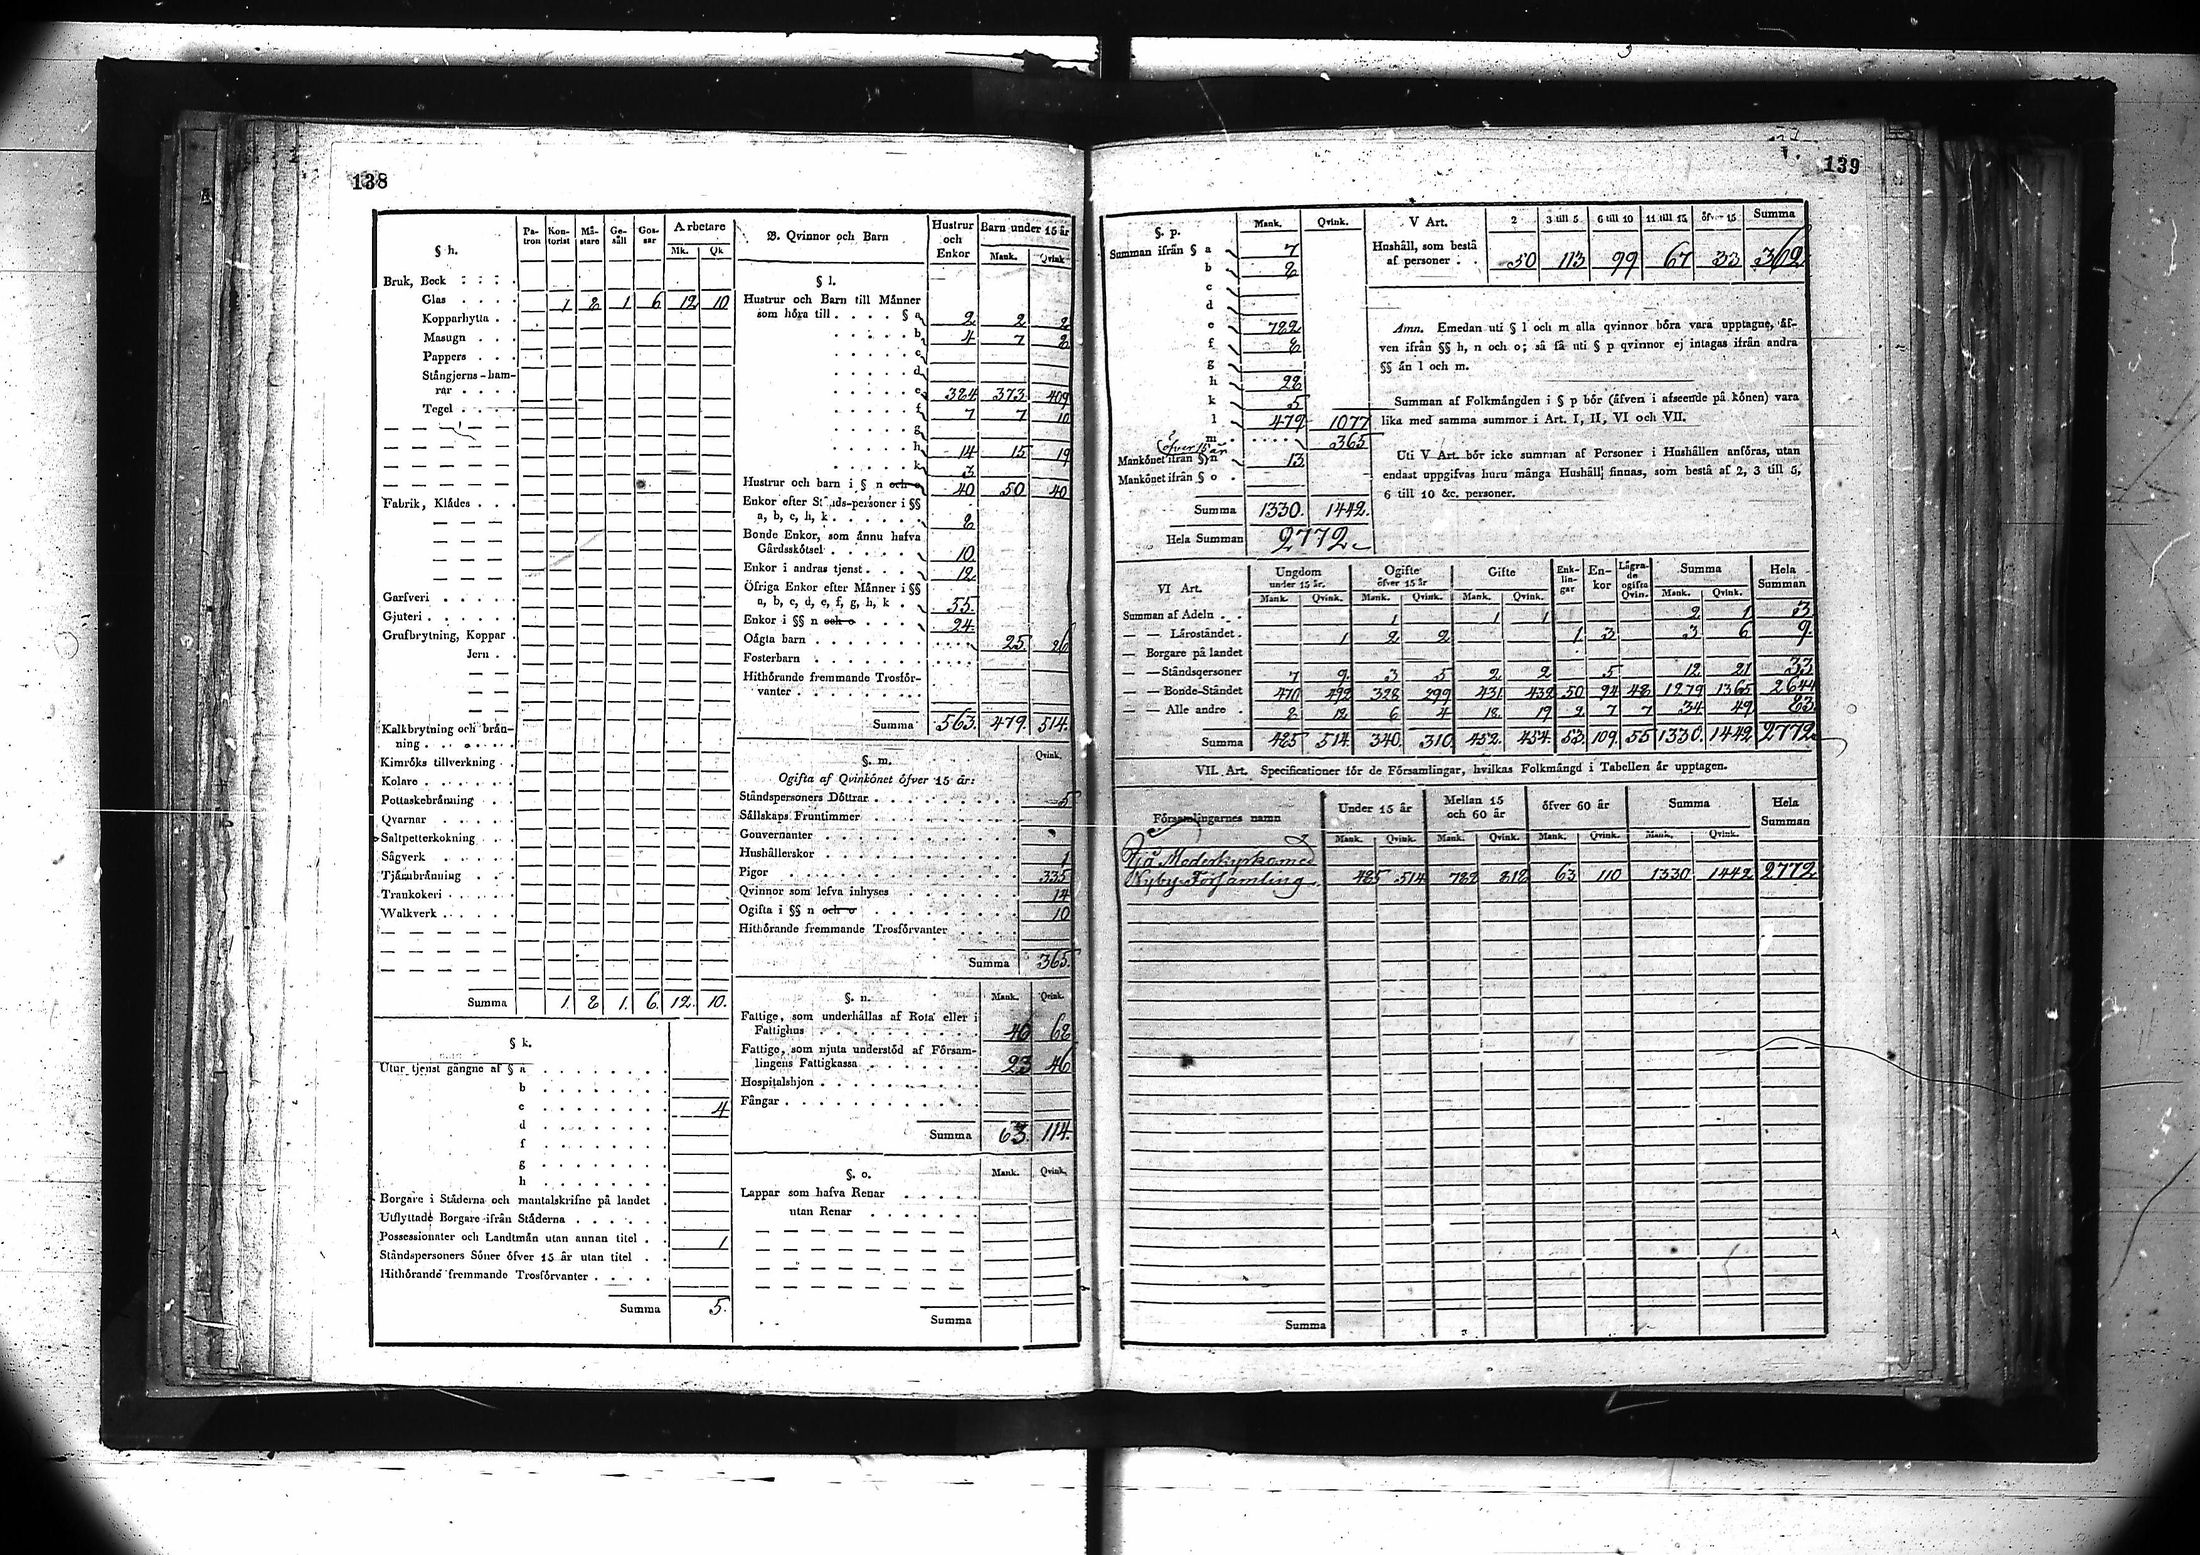 138
§ h.
Pa-tron Kon-torist Mä-stare Ge-säll Gos-sar Arbetare
Mk. Qk
Bruk, Bock
Glas . . . . 1 2 1 6 12 10
Kopparhytta . .
Masugn . . .
Pappers . . .
Stångjerns-ham-
rar . . . .
Tegel . .
Fabrik, Klådes . . .
Garfveri . . . . .
Gjuteri . . . . . .
Grufbrytning, Koppar .
Jern . .
Kalkbrytning och brån-
ning . . . . . .
Kimröks tillverkning .
Kolare . . . . . .
Pottaskebränning . .
Qvarnar . . . . .
Saltpetterkokning . .
Sågverk . . . . .
Tjårubrånning . . .
Trankokeri . . . . .
Walkverk . . . . .
Summa 1. 2 1. 6. 12. 10.
§ k.
Utur tjenst gångne af § a . . . . . . .
b . . . . . . .
c . . . . . . . 4
d . . . . . . .
f . . . . . . .
g . . . . . . .
h . . . . . . .
Borgare i Ståderna och mantalskrifne på landet .
Utflyttade Borgare ifrån Ståderna . . . . . .
Possessionater och Landtmån utan annan titel . . 1
Ståndspersoners Söner öfver 15 år utan titel . .
Hithörande fremmande Trosförvanter . . . . .
Summa 5.
B. Qvinnor och Barn
Hustrur och Enkor Barn under 15 år
Mank. Qvink
§ l.
Hustrur och Barn till Månner
som höra till . . . . § a 2 2 2
b 4 7 2
c
d
e 384 373 409
f 7 7 10
g
h 14 15 19
k 3
Hustrur och barn i § n och o 40 50 40
Enkor efter Stånds-personer i §§
a, b, c, h, k . . . . . . 8
Bonde Enkor, som ånnu hafva
Gårdsskötsel . . . . . . 10
Enkor i andras tjenst . . . . 12
Öfriga Enkor efter Månner i §§
a, b, c, d, e, f, g, h, k . . 55.
Enkor i §§ n och o . . . . 24.
Oågta barn . . . . . . . 25 26
Fosterbarn . . . . . . .
Hithörande fremmande Trosför-
vanter . . . . . . . . .
Summa 563. 479. 514.
§. m. Qvink.
Ogifta af Qvinkönet öfver 15 år:
Ståndspersoners Döttrar . . . . . . . . . 5
Sällskaps Fruntimmer . . . . . . . . .
Gouvernanter . . . . . . . . . .
Hushållerskor . . . . . . . . . . 1
Pigor . . . . . . . . . . . 335
Qvinnor som lefva inhyses . . . . . . . 14
Ogifta i §§ n och o . . . . . . . . . 10
Hithörande fremmande Trosförvanter . . . .
Summa 365.
§. n. Mank. Qvink.
Fattige, som underhållas af Rota eller i
Fattighus . . . . . . . . . 40 68
Fattige, som njuta understöd af Försam-
lingens Fattigkassa . . . . . . . 23 46
Hospitalshjon . . . . . . . . . .
Fångar . . . . . . . . . . . .
Summa 63. 114.
§. o. Mank. Qvink.
Lappar som hafva Renar . . . . .
utan Renar . . . . . . .
Summa
139
§. p. Mank. Qvink.
Summan ifrån § a 7
b 8
c
d
e 788
f 8
g
h 22
k 5
l 479 1077
m . . . . . 365
(öfver 15 år
Mankönet ifrån § n 13
Mankönet ifrån § o .
Summa 1330. 1442.
Hela Summan 2772
V Art. 2 3 till 5 6 till 10 11 till 15 öfver 15 Summa
Hushåll, som bestå
af personer . . 50 113 99 67 33 362
Anm. Emedan uti § l och m alla qvinnor böra vara upptagne, åf-
ven ifrån §§ h, n och o; så få uti § p qvinnor ej intagas ifrån andra
§§ ån l och m.
Summan af Folkmångden i § p bör (åfven i afseende på könen) vara
lika med samma summor i Art. I, II, VI och VII.
Uti V Art. bör icke summan af Personer i Hushållen anföras, utan
endast uppgifvas huru många Hushåll finnas, som bestå af 2, 3 till 5,
6 till 10 &c. personer.
VI Art. Ungdom under 15 år. Ogifte öfver 15 år Gifte Enk-lin-gar En-kor Lägra-de ogifta Qvin. Summa Hela Summan
Mank. Qvink. Mank. Qvink. Mank. Qvink. Mank. Qvink.
Summan af Adeln . . 1 1 1 2 1 3
— — Låroståndet . 1 2 2 1 3 3 6 9.
— Borgare på landet
— — Ståndspersoner 7 9 3 5 2 2 5 12 21 33
— — Bonde-Ståndet 470 492 328 299 431 432 50 94 48 1279 1365 2644
— — Alle andre . 8 12 6 4 18 19 2 7 7 34 49 83
Summa 485 514. 340. 310. 452. 454. 53. 109. 55 1330. 1442 2772
VII. Art. Specificationer för de Församlingar, hvilkas Folkmångd i Tabellen år upptagen.
Församlingarnes namn Under 15 år Mellan 15 och 60 år öfver 60 år Summa Hela Summan
Mank. Qvink. Mank. Qvink. Mank. Qvink. Mank. Qvink.
Moderkyrka med
Nyby Församling 485 514 782 818 63 110 1330 1442 2772
Summa